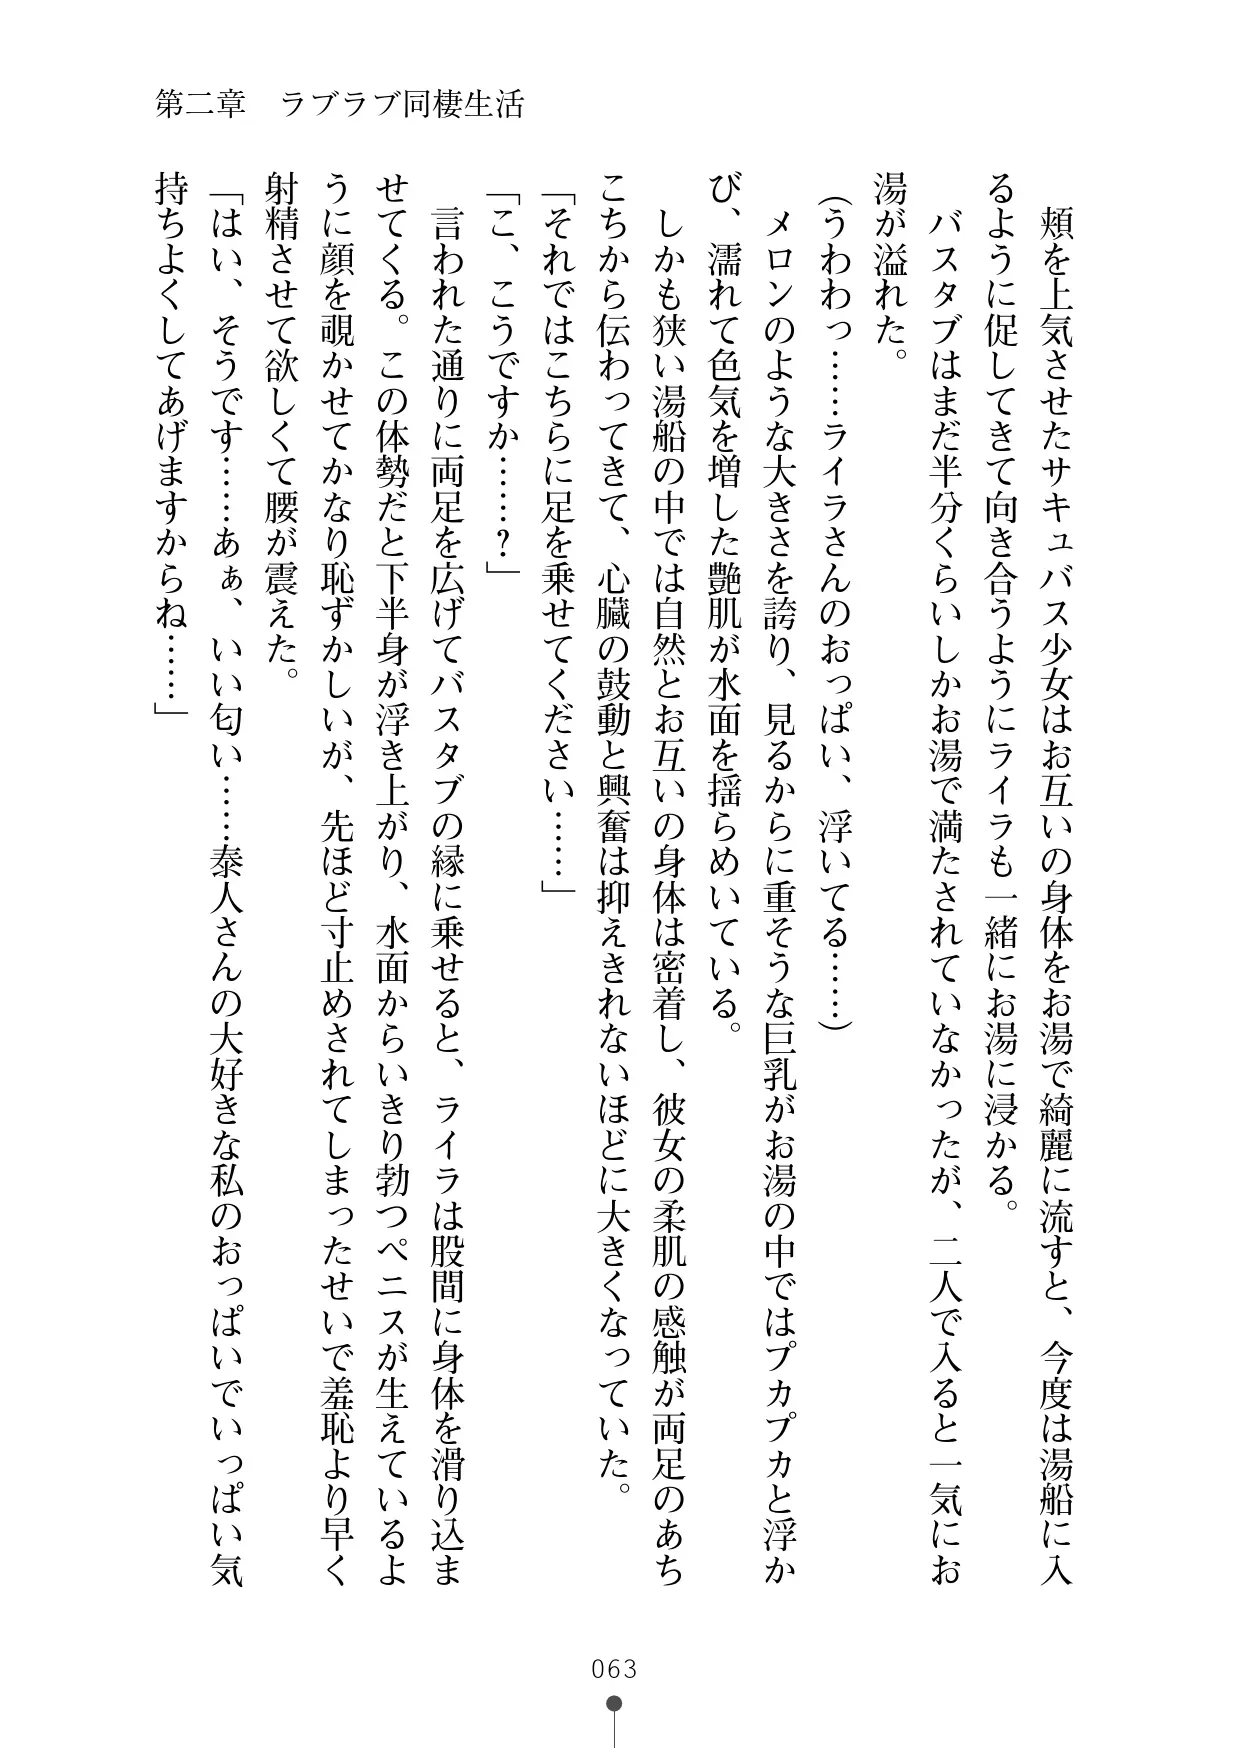 第二章　ラブラブ同棲生活
　頬を上気させたサキュバス少女はお互いの身体をお湯で綺麗に流すと、今度は湯船に入
るように促してきて向き合うようにライラも一緒にお湯に浸かる。
　バスタブはまだ半分くらいしかお湯で満たされていなかったが、二人で入ると一気にお
湯が溢れた。
（うわわっ……ライラさんのおっぱい、浮いてる……）
　メロンのような大きさを誇り、見るからに重そうな巨乳がお湯の中ではプカプカと浮か
び、濡れて色気を増した艶肌が水面を揺らめいている。
　しかも狭い湯船の中では自然とお互いの身体は密着し、彼女の柔肌の感触が両足のあち
こちから伝わってきて、心臓の鼓動と興奮は抑えきれないほどに大きくなっていた。
「それではこちらに足を乗せてください……」
「こ、こうですか……？」
　言われた通りに両足を広げてバスタブの縁に乗せると、ライラは股間に身体を滑り込ま
せてくる。この体勢だと下半身が浮き上がり、水面からいきり勃つペニスが生えているよ
うに顔を覗かせてかなり恥ずかしいが、先ほど寸止めされてしまったせいで羞恥より早く
射精させて欲しくて腰が震えた。
「はい、そうです……あぁ、いい匂い……泰人さんの大好きな私のおっぱいでいっぱい気
持ちよくしてあげますからね……」
063